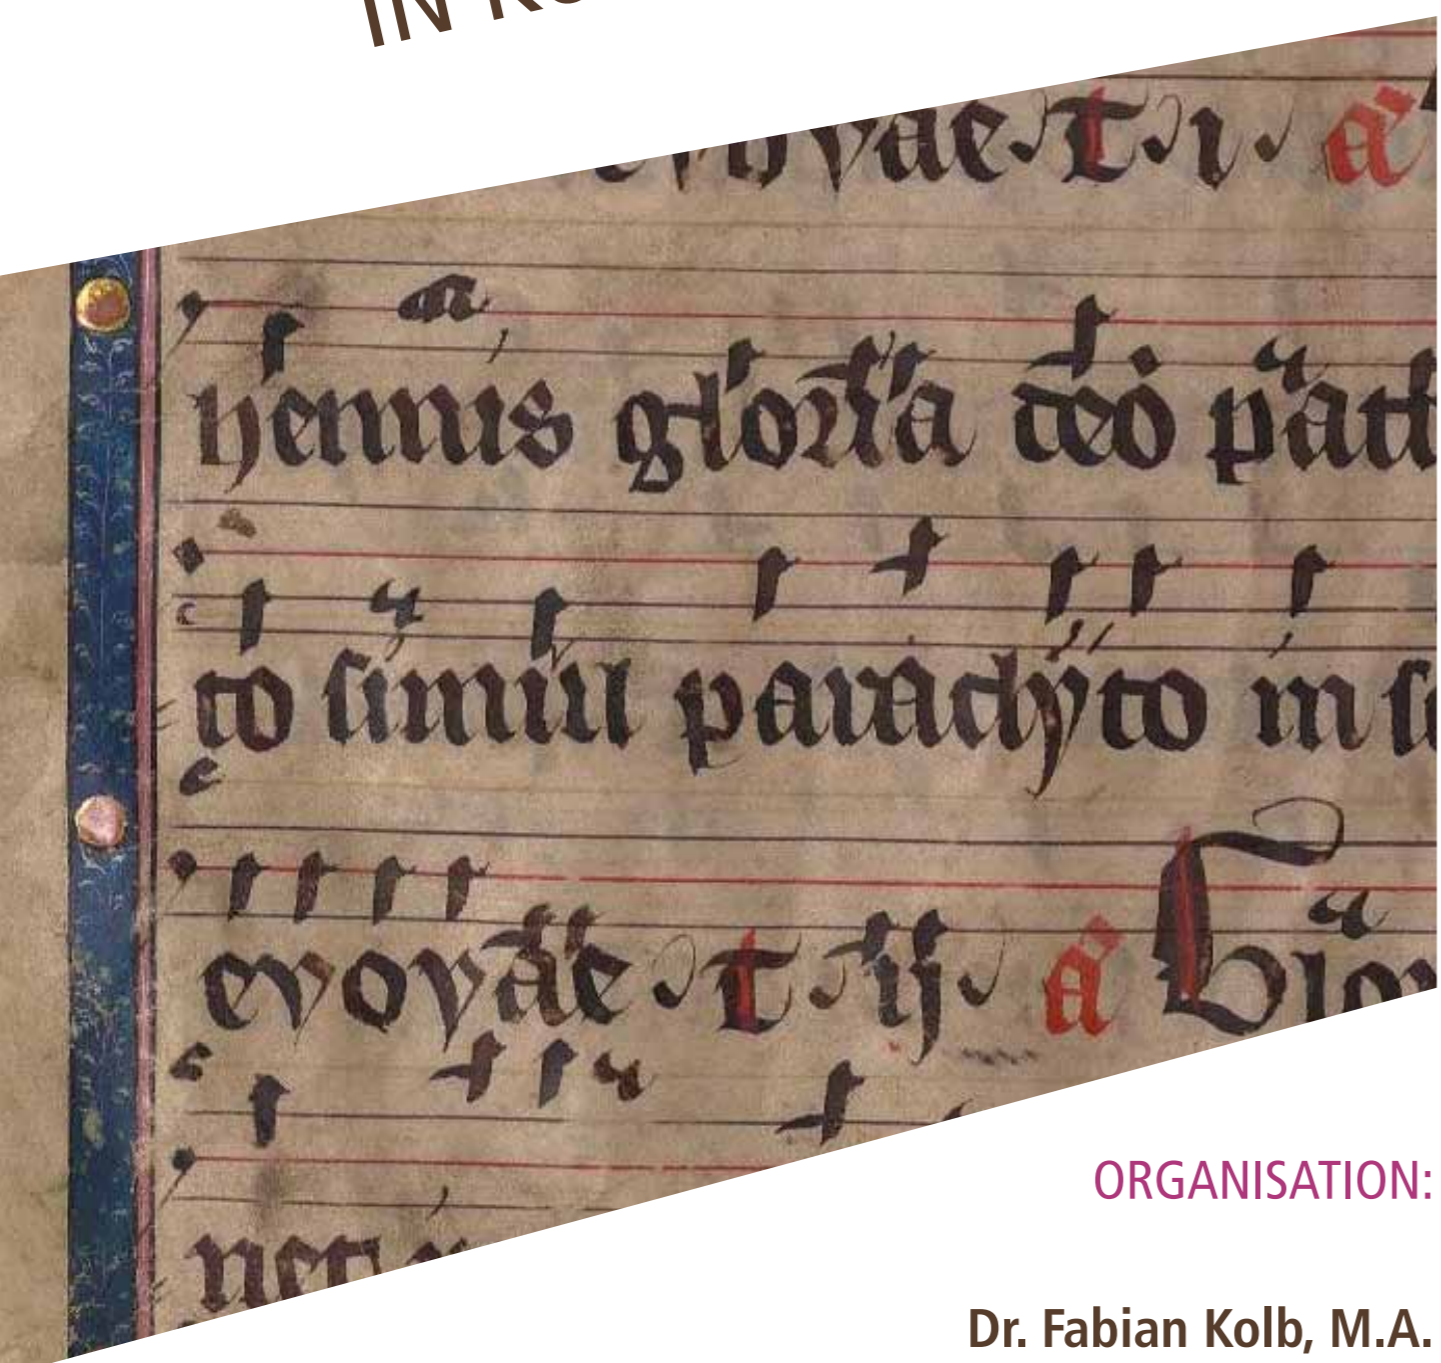 IN
evovae t i a
hennis gloria deo patr
to simul paraclyto in se
evovae t ij a
ORGANISATION:
Dr. Fabian Kolb, M.A.